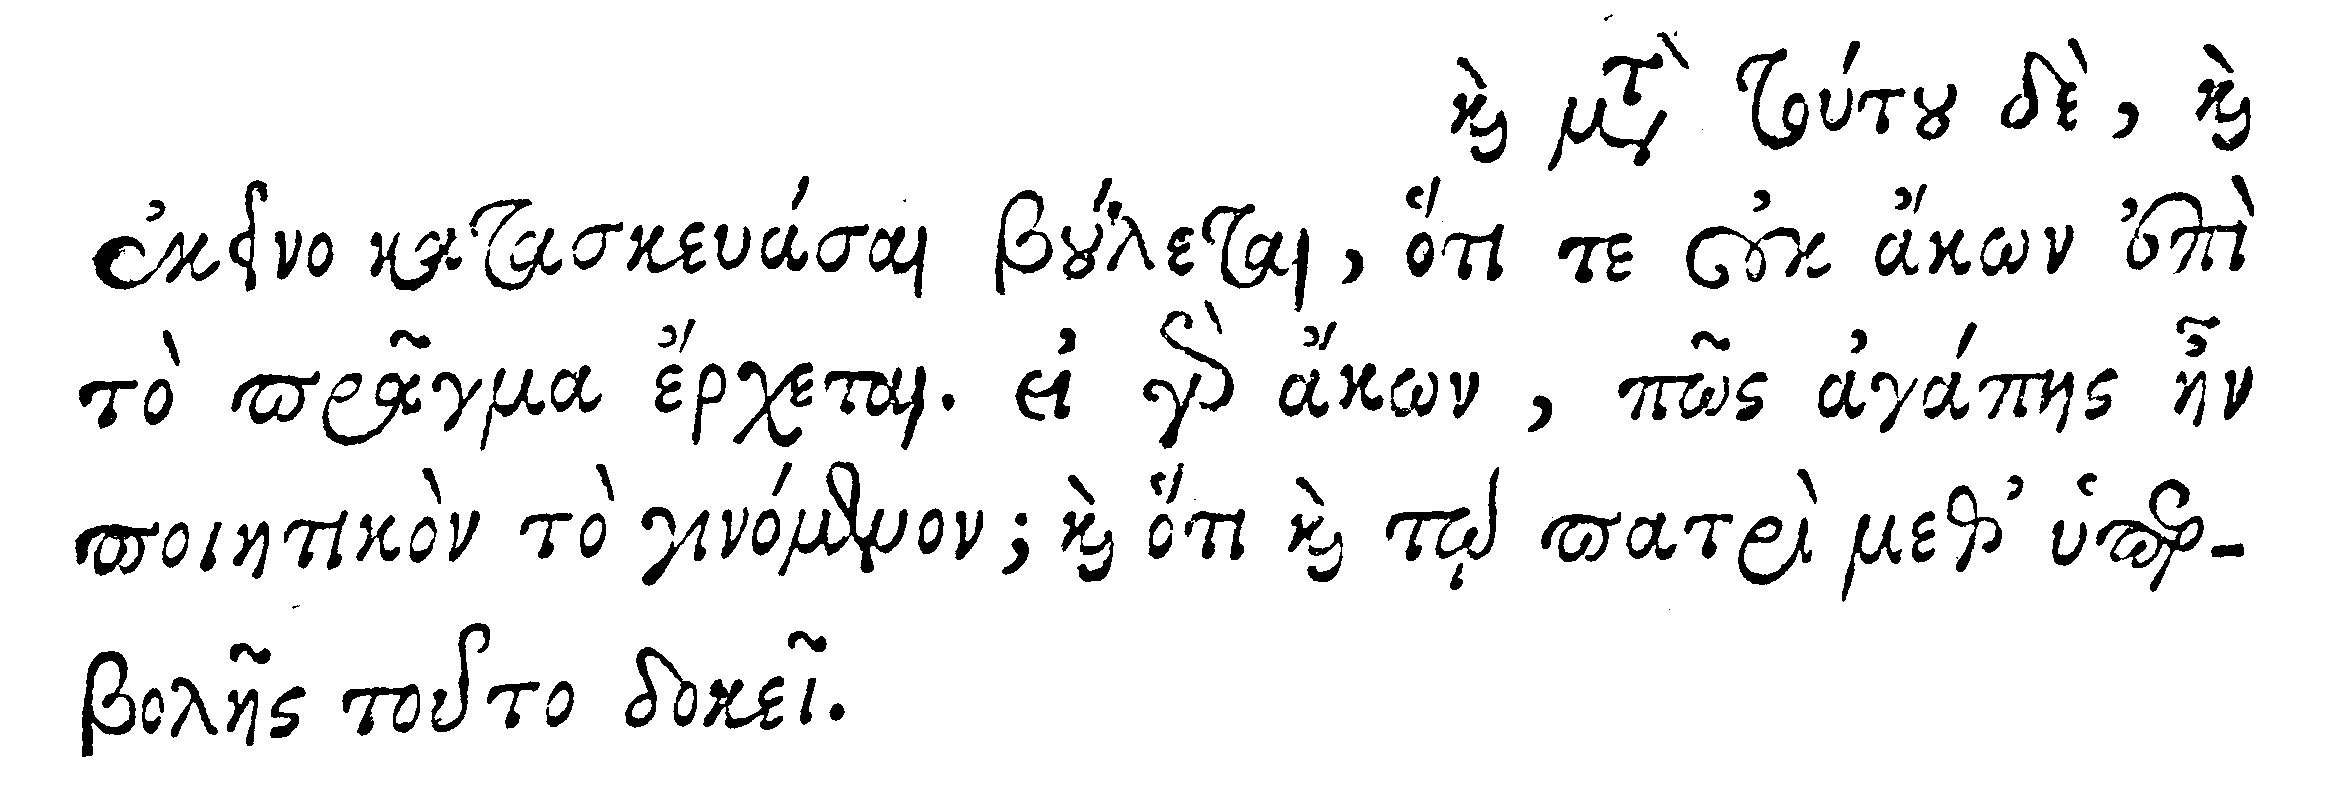 καὶ μετὰ τούτου δὲ, καὶ
ἐκεῖνο κατασκευάσαι βούλεται, ὅτι τε οὐκ ἄκων ἐπὶ
τὸ πρᾶγμα ἔρχεται. εἰ γὰρ ἄκων, πῶς ἀγάπης ἦν
ποιητικὸν τὸ γινόμενον; καὶ ὅτι καὶ τῷ πατρὶ μεθ’ ὑπερ-
βολῆς τοῦτο δοκεῖ.